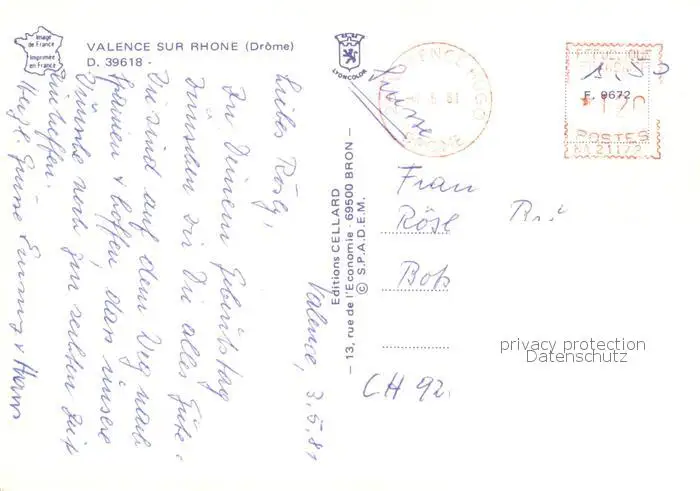 Image
de France
Imprimée
en France
VALENCE SUR RHONE (Drôme)
D. 39618 -
LYONCOLOR
Editions CELLARD
— 13, rue de l'Economie - 69500 BRON —
© S.P.A.D.E.M.
Valence, 3.5.81
Liebes Rösly,
Zu Deinem Geburtstag
wünschen wir Dir alles Gute.
Wir sind auf dem Weg nach
Spanien & hoffen, dass unsere
Wünsche noch zur rechten Zeit
eintreffen.
Herzl. Grüsse
& Hans
Suisse
5 81
DROME
F. 9672
POSTES
Frau
Rösl
Boss
CH 92
privacy protection
Datenschutz